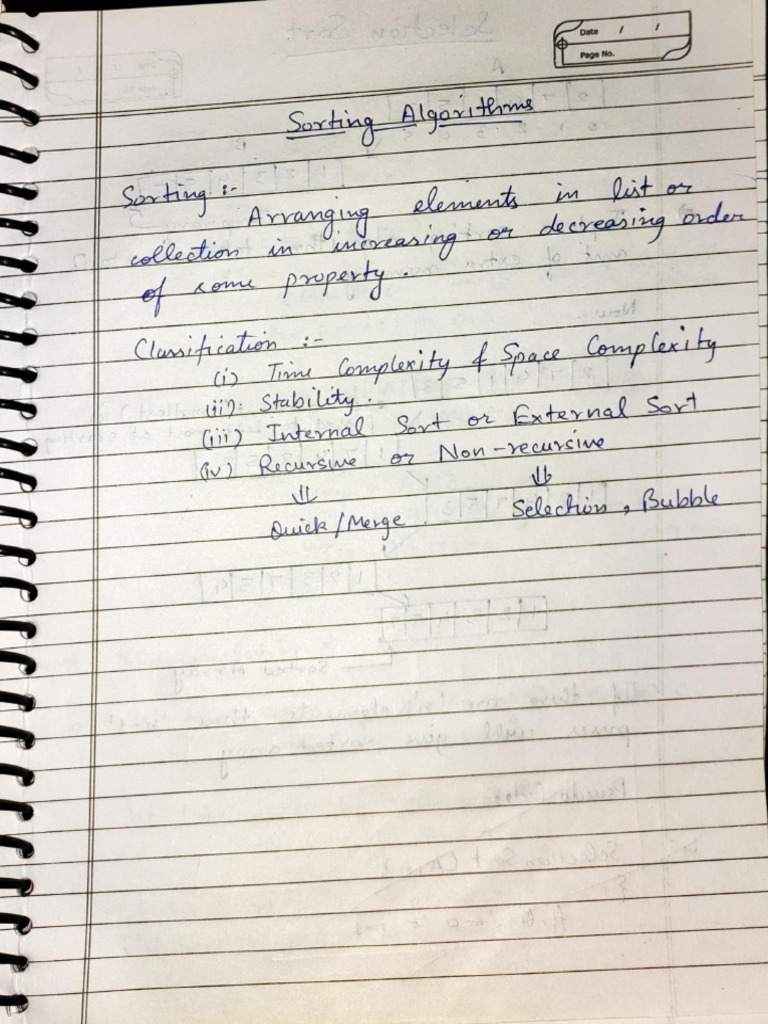 Date / /
Page No.
Sorting Algorithms
Sorting :-
Arranging elements in list or
collection in increasing or decreasing order
of some property.
Classification :-
(i) Time Complexity & Space Complexity
(ii) Stability.
(iii) Internal Sort or External Sort
(iv) Recursive or Non-recursive
⇓ ⇓
Quick/Merge Selection, Bubble